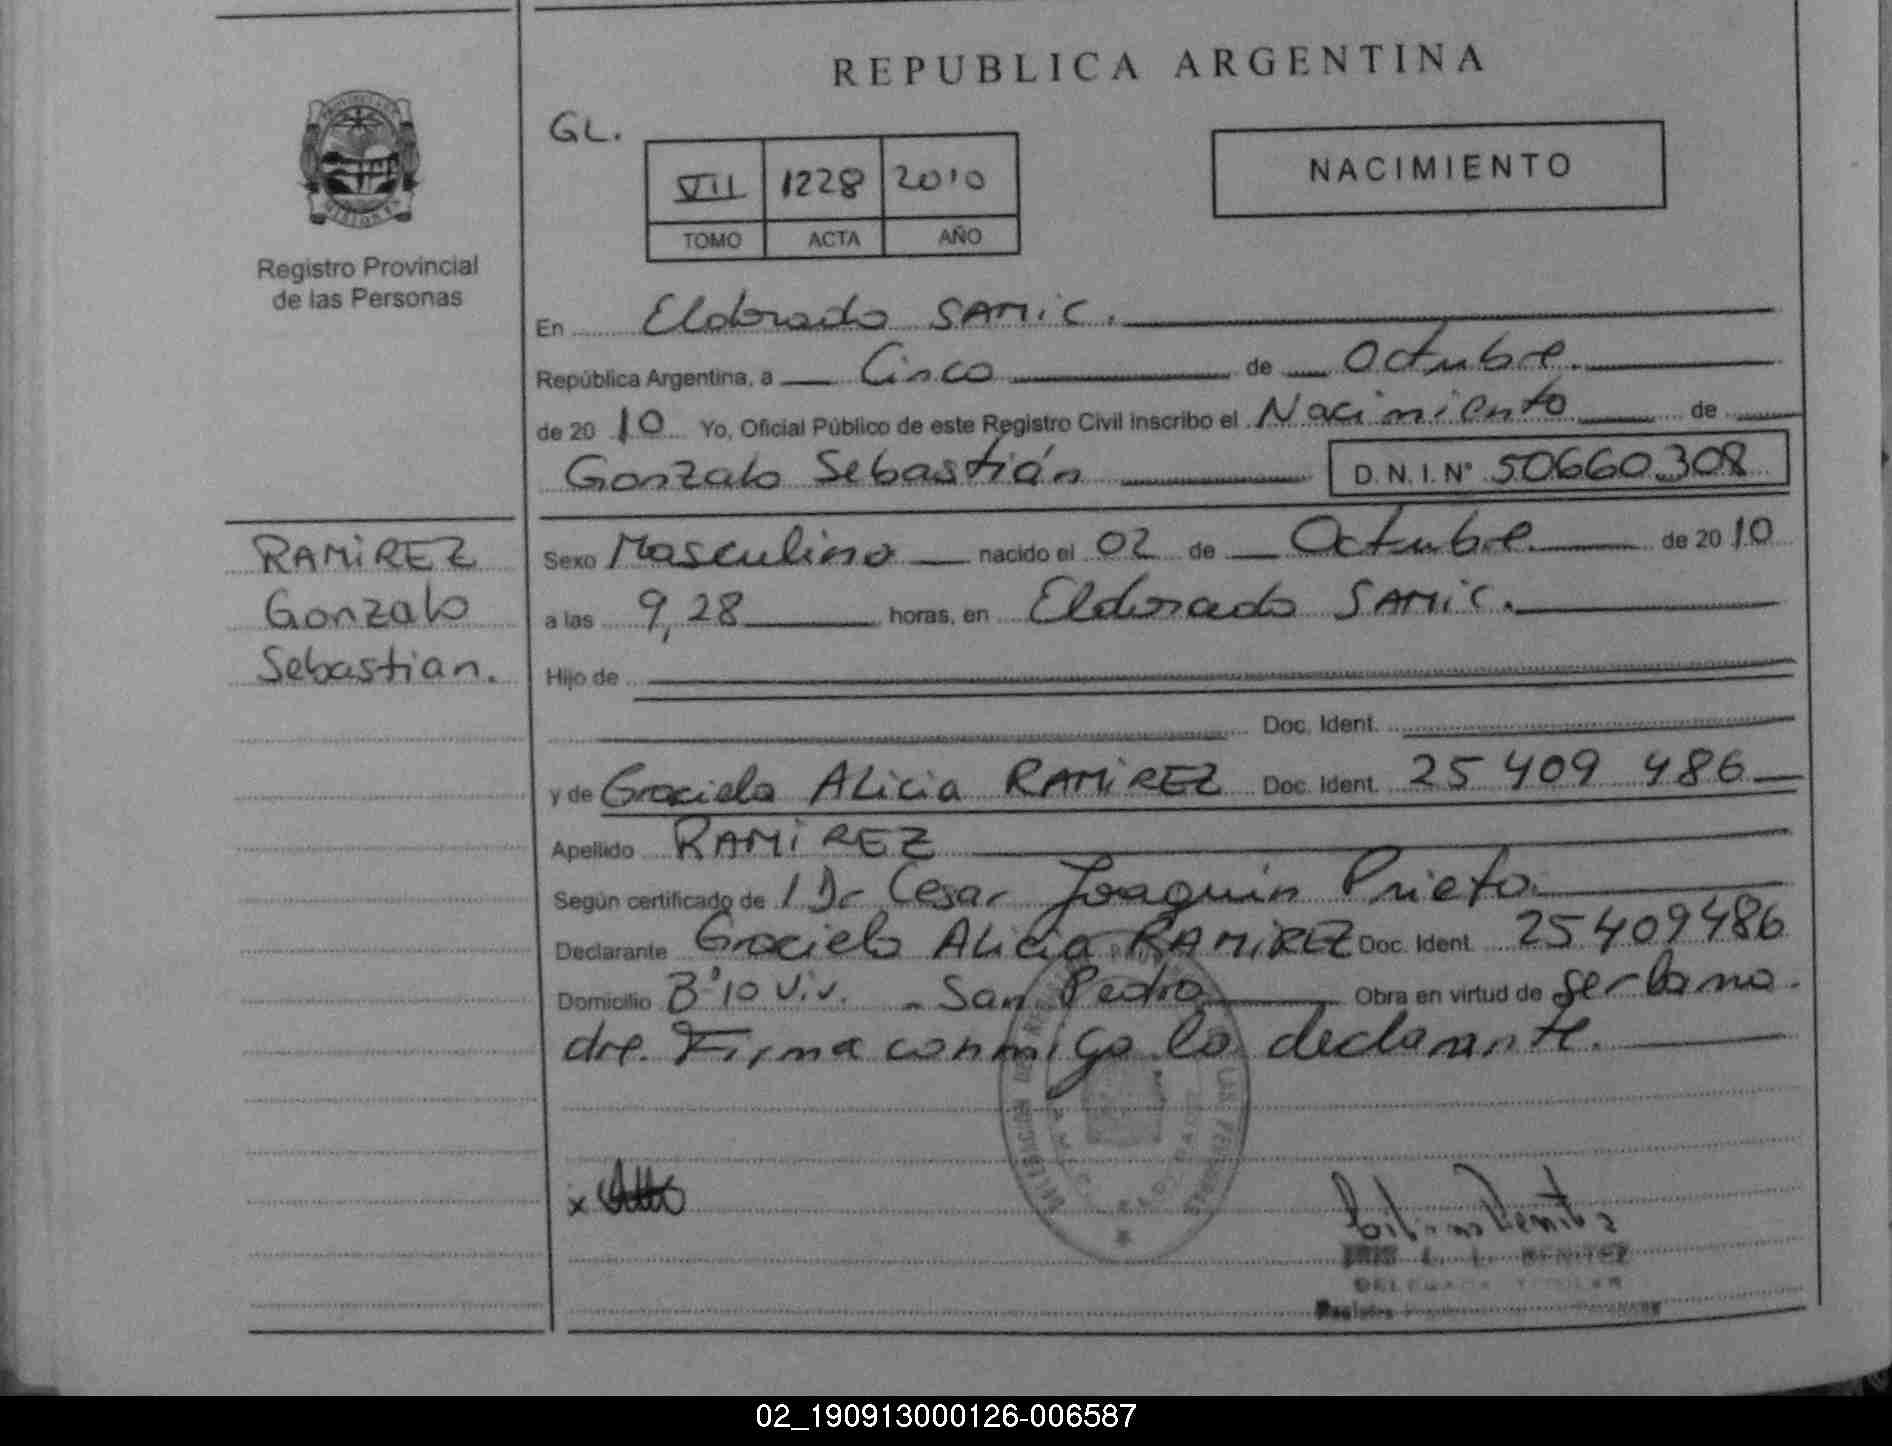 REPUBLICA ARGENTINA
GL.
VII 1228 2010
TOMO ACTA AÑO
NACIMIENTO
MISIONES
Registro Provincial
de las Personas
En Eldorado SAMIC.
República Argentina, a Cinco de Octubre.
de 20 10 Yo, Oficial Público de este Registro Civil inscribo el Nacimiento de
Gonzalo Sebastián D.N.I.N° 50660.308
RAMIREZ
Gonzalo
Sebastian.
Sexo Masculino nacido el 02 de Octubre de 20 10
a las 9,28 horas, en Eldorado SAMIC.
Hijo de
Doc. Ident.
y de Graciela ALicia RAMIREZ Doc. Ident. 25 409 486
Apellido RAMIREZ
Según certificado de Dr Cesar Joaquin Prieto.
Declarante Graciela ALicia RAMIREZ Doc. Ident. 25409486
Domicilio B° 10 Viv. - San Pedro Obra en virtud de ser la ma
dre. Firma conmigo la declarante.
x
BENITEZ
02_190913000126-006587